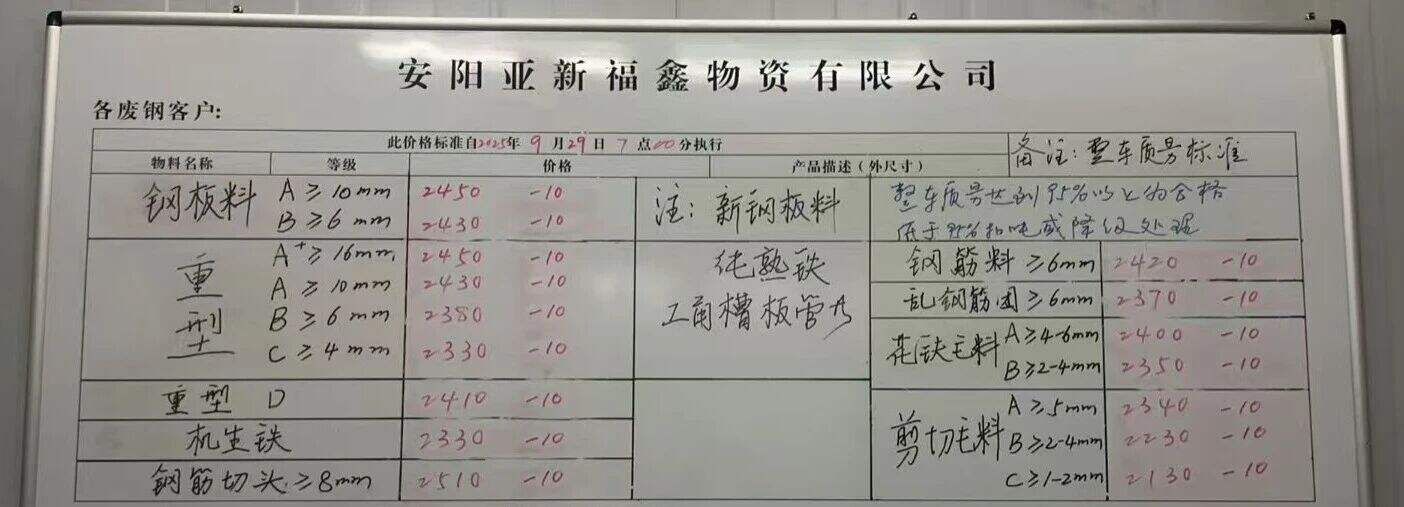 安阳亚新福鑫物资有限公司
各废钢客户:
此价格标准自2025年 9 月 29 日 7 点00分执行
备注: 整车质另标准
物料名称 等级 价格 产品描述（外尺寸）
钢板料 A ≥ 10mm 2450 -10
B ≥ 6 mm 2430 -10
注: 新钢板料
整车质另达到95%以上为合格
低于95%扣吨或降级处理
重型 A+ ≥ 16mm 2450 -10
A ≥ 10mm 2430 -10
B ≥ 6 mm 2380 -10
C ≥ 4 mm 2330 -10
纯熟铁
工角槽板管
重型 D 2410 -10
机生铁 2330 -10
钢筋切头 ≥ 8mm 2510 -10
钢筋料 ≥6mm 2420 -10
乱钢筋团 ≥6mm 2370 -10
花铁毛料 A ≥4-6mm 2400 -10
B ≥2-4mm 2350 -10
剪切毛料 A ≥5mm 2340 -10
B ≥2-4mm 2230 -10
C ≥1-2mm 2130 -10